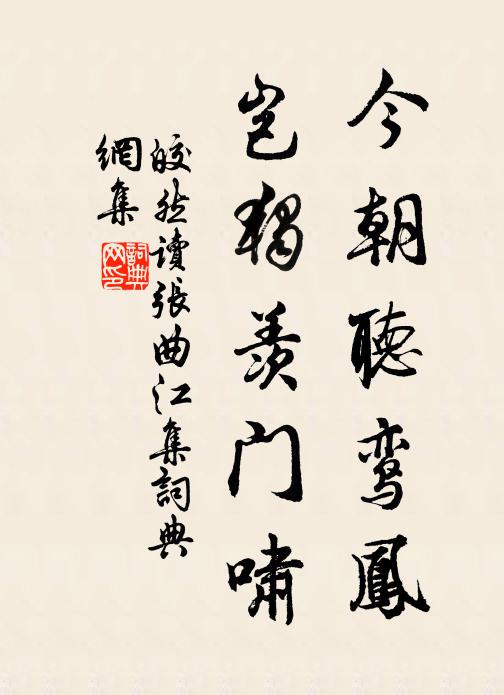 今朝聽鸾鳳
岂独羨门嘯
皎然讀張曲江集詞典
網集
詞典网印